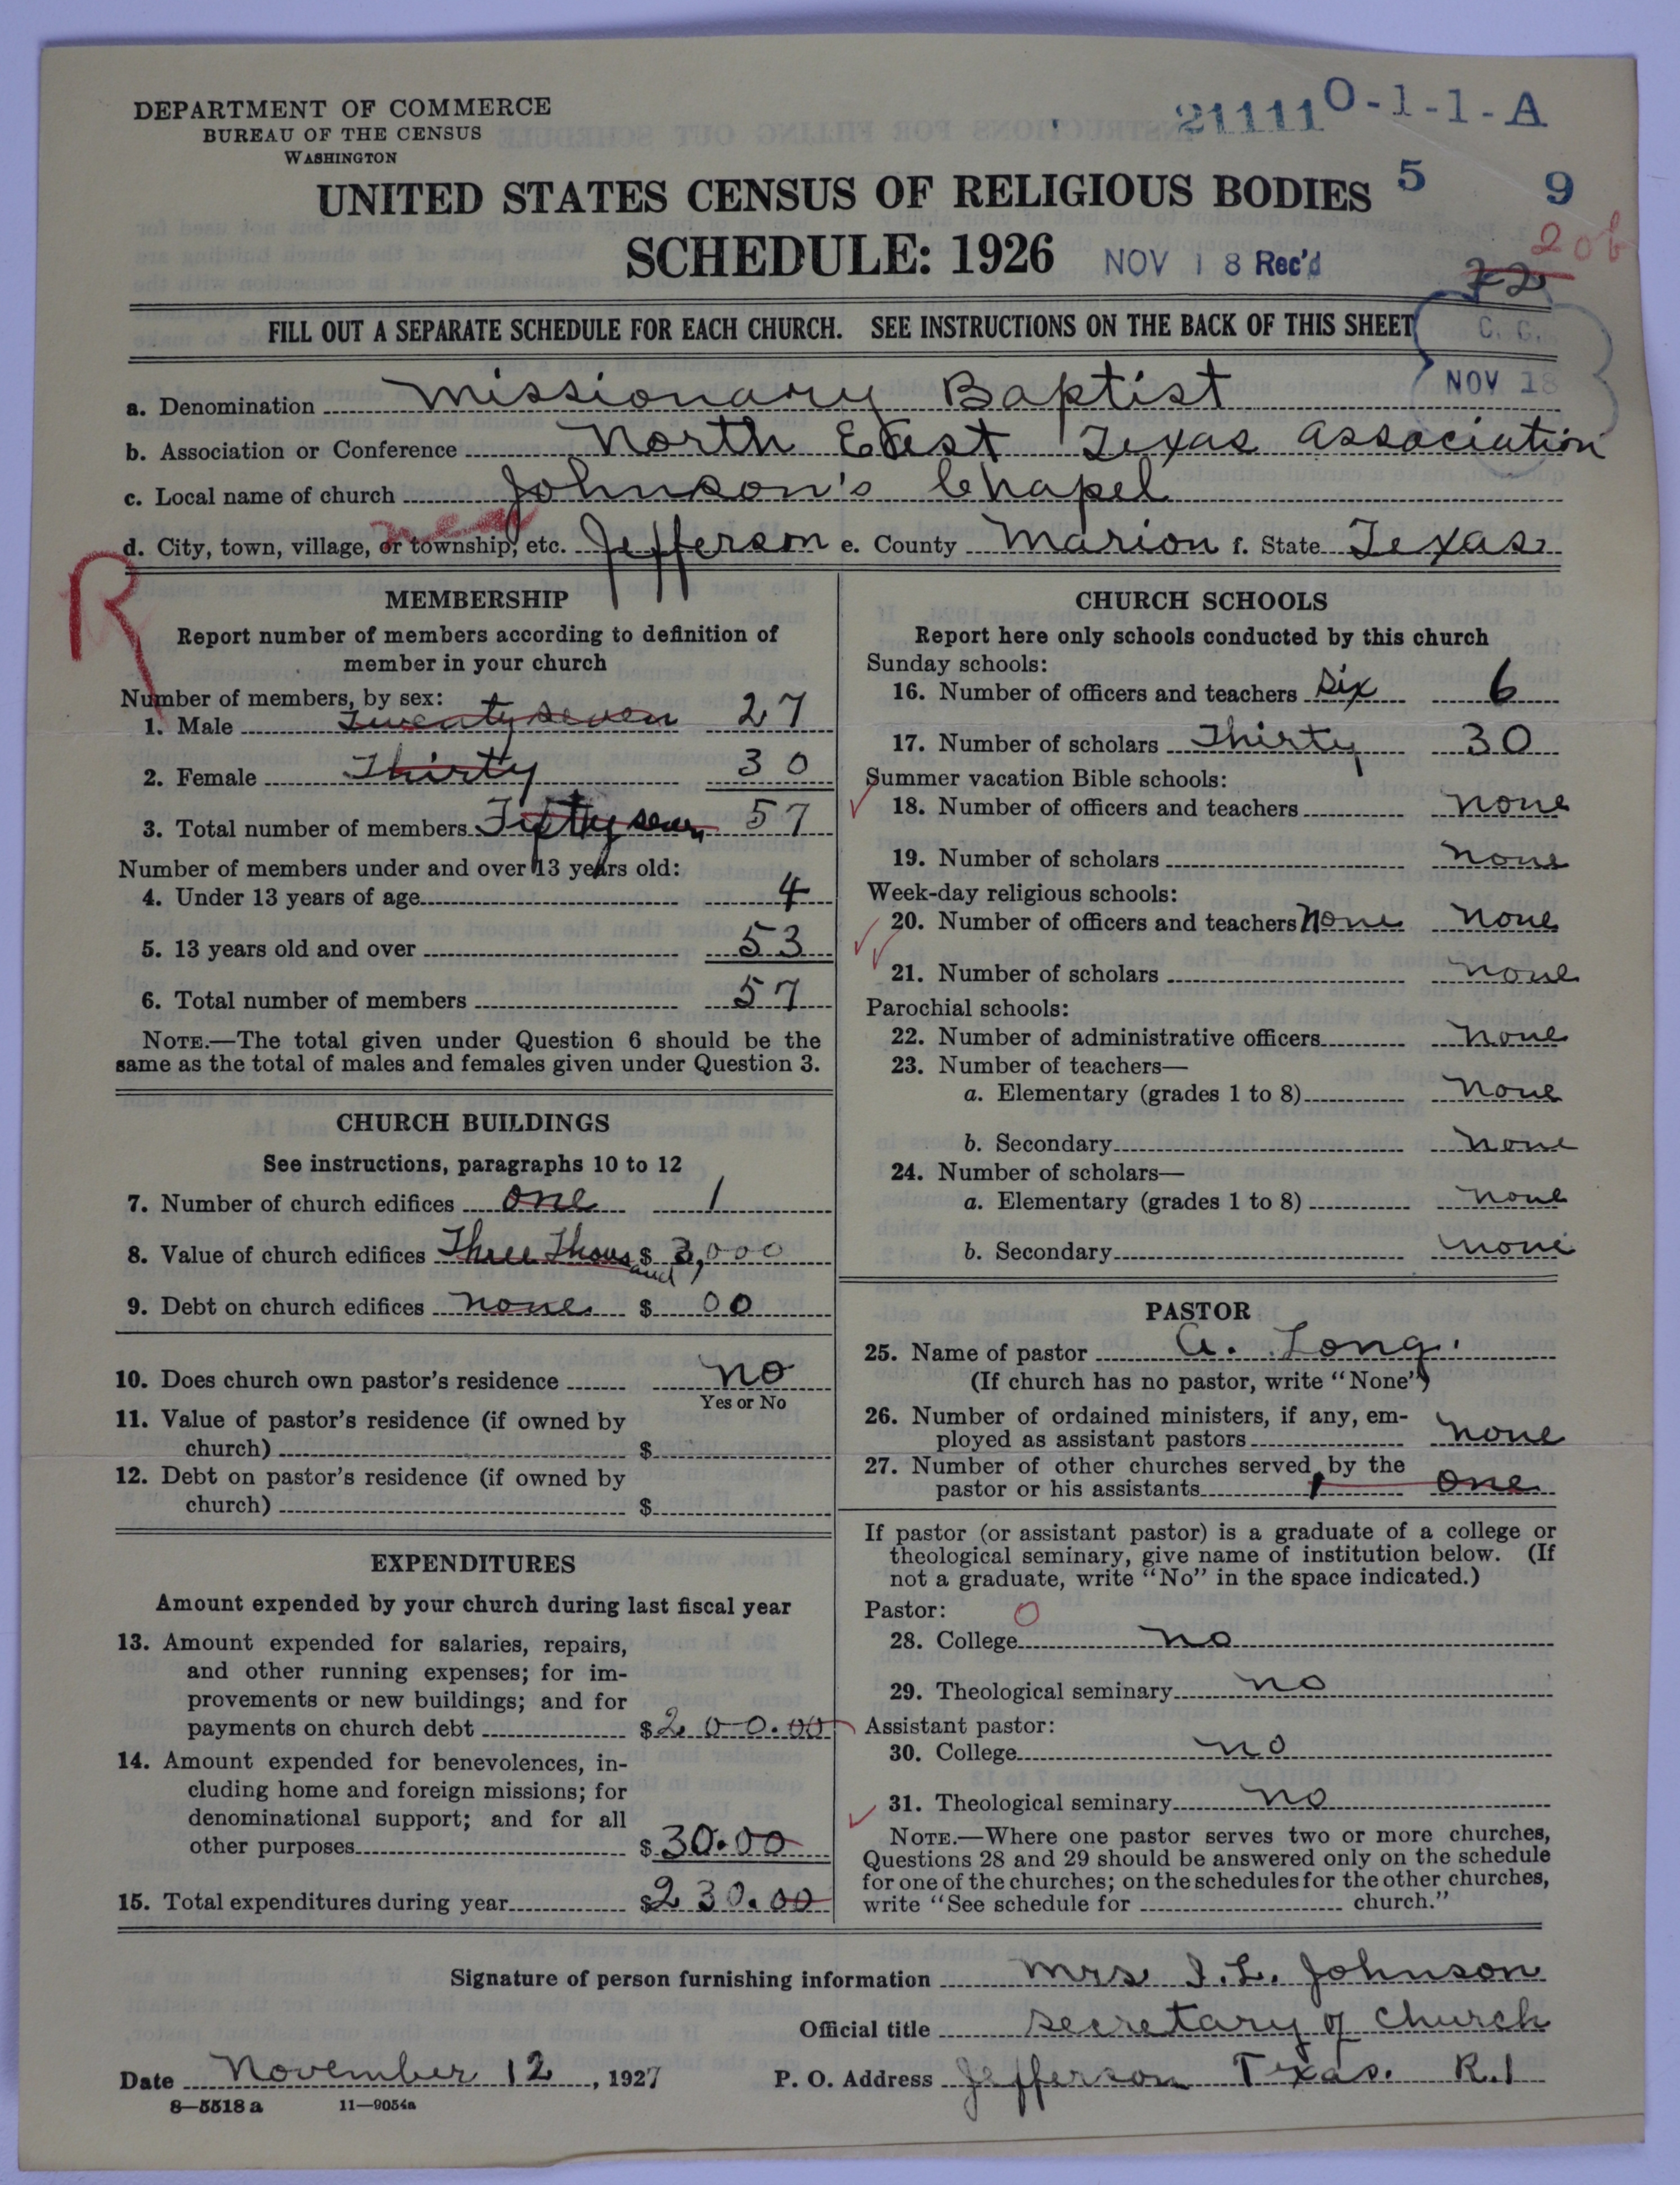 DEPARTMENT OF COMMERCE
BUREAU OF THE CENSUS
WASHINGTON
21111 0-1-1-A
5 9
UNITED STATES CENSUS OF RELIGIOUS BODIES
20b
SCHEDULE: 1926 NOV 18 Rec'd
72
FILL OUT A SEPARATE SCHEDULE FOR EACH CHURCH. SEE INSTRUCTIONS ON THE BACK OF THIS SHEET
C. G.
NOV 18
a. Denomination Missionary Baptist
b. Association or Conference North East Texas Association
c. Local name of church Johnson's Chapel
d. City, town, village, or township, etc. Jefferson e. County Marion f. State Texas
R
MEMBERSHIP
Report number of members according to definition of
member in your church
Number of members, by sex:
1. Male Twenty seven 27
2. Female Thirty 30
3. Total number of members Fifty seven 57
Number of members under and over 13 years old:
4. Under 13 years of age 4
5. 13 years old and over 53
6. Total number of members 57
NOTE.—The total given under Question 6 should be the
same as the total of males and females given under Question 3.
CHURCH BUILDINGS
See instructions, paragraphs 10 to 12
7. Number of church edifices one 1
8. Value of church edifices Three Thousand $ 3,000
9. Debt on church edifices none $ 00
10. Does church own pastor's residence no
Yes or No
11. Value of pastor's residence (if owned by
church) $
12. Debt on pastor's residence (if owned by
church) $
EXPENDITURES
Amount expended by your church during last fiscal year
13. Amount expended for salaries, repairs,
and other running expenses; for im-
provements or new buildings; and for
payments on church debt $200.00
14. Amount expended for benevolences, in-
cluding home and foreign missions; for
denominational support; and for all
other purposes $30.00
15. Total expenditures during year $230.00
CHURCH SCHOOLS
Report here only schools conducted by this church
Sunday schools:
16. Number of officers and teachers six 6
17. Number of scholars Thirty 30
Summer vacation Bible schools:
18. Number of officers and teachers none
19. Number of scholars none
Week-day religious schools:
20. Number of officers and teachers none none
21. Number of scholars none
Parochial schools:
22. Number of administrative officers none
23. Number of teachers—
a. Elementary (grades 1 to 8) none
b. Secondary none
24. Number of scholars—
a. Elementary (grades 1 to 8) none
b. Secondary none
PASTOR
25. Name of pastor A. Long.
(If church has no pastor, write "None")
26. Number of ordained ministers, if any, em-
ployed as assistant pastors none
27. Number of other churches served by the
pastor or his assistants 1 one
If pastor (or assistant pastor) is a graduate of a college or
theological seminary, give name of institution below. (If
not a graduate, write "No" in the space indicated.)
Pastor: O
28. College no
29. Theological seminary no
Assistant pastor:
30. College no
31. Theological seminary no
NOTE.—Where one pastor serves two or more churches,
Questions 28 and 29 should be answered only on the schedule
for one of the churches; on the schedules for the other churches,
write "See schedule for church."
Signature of person furnishing information Mrs I.L. Johnson
Official title secretary of church
Date November 12, 1927 P. O. Address Jefferson Texas. R.1
8—5518a 11—9054a